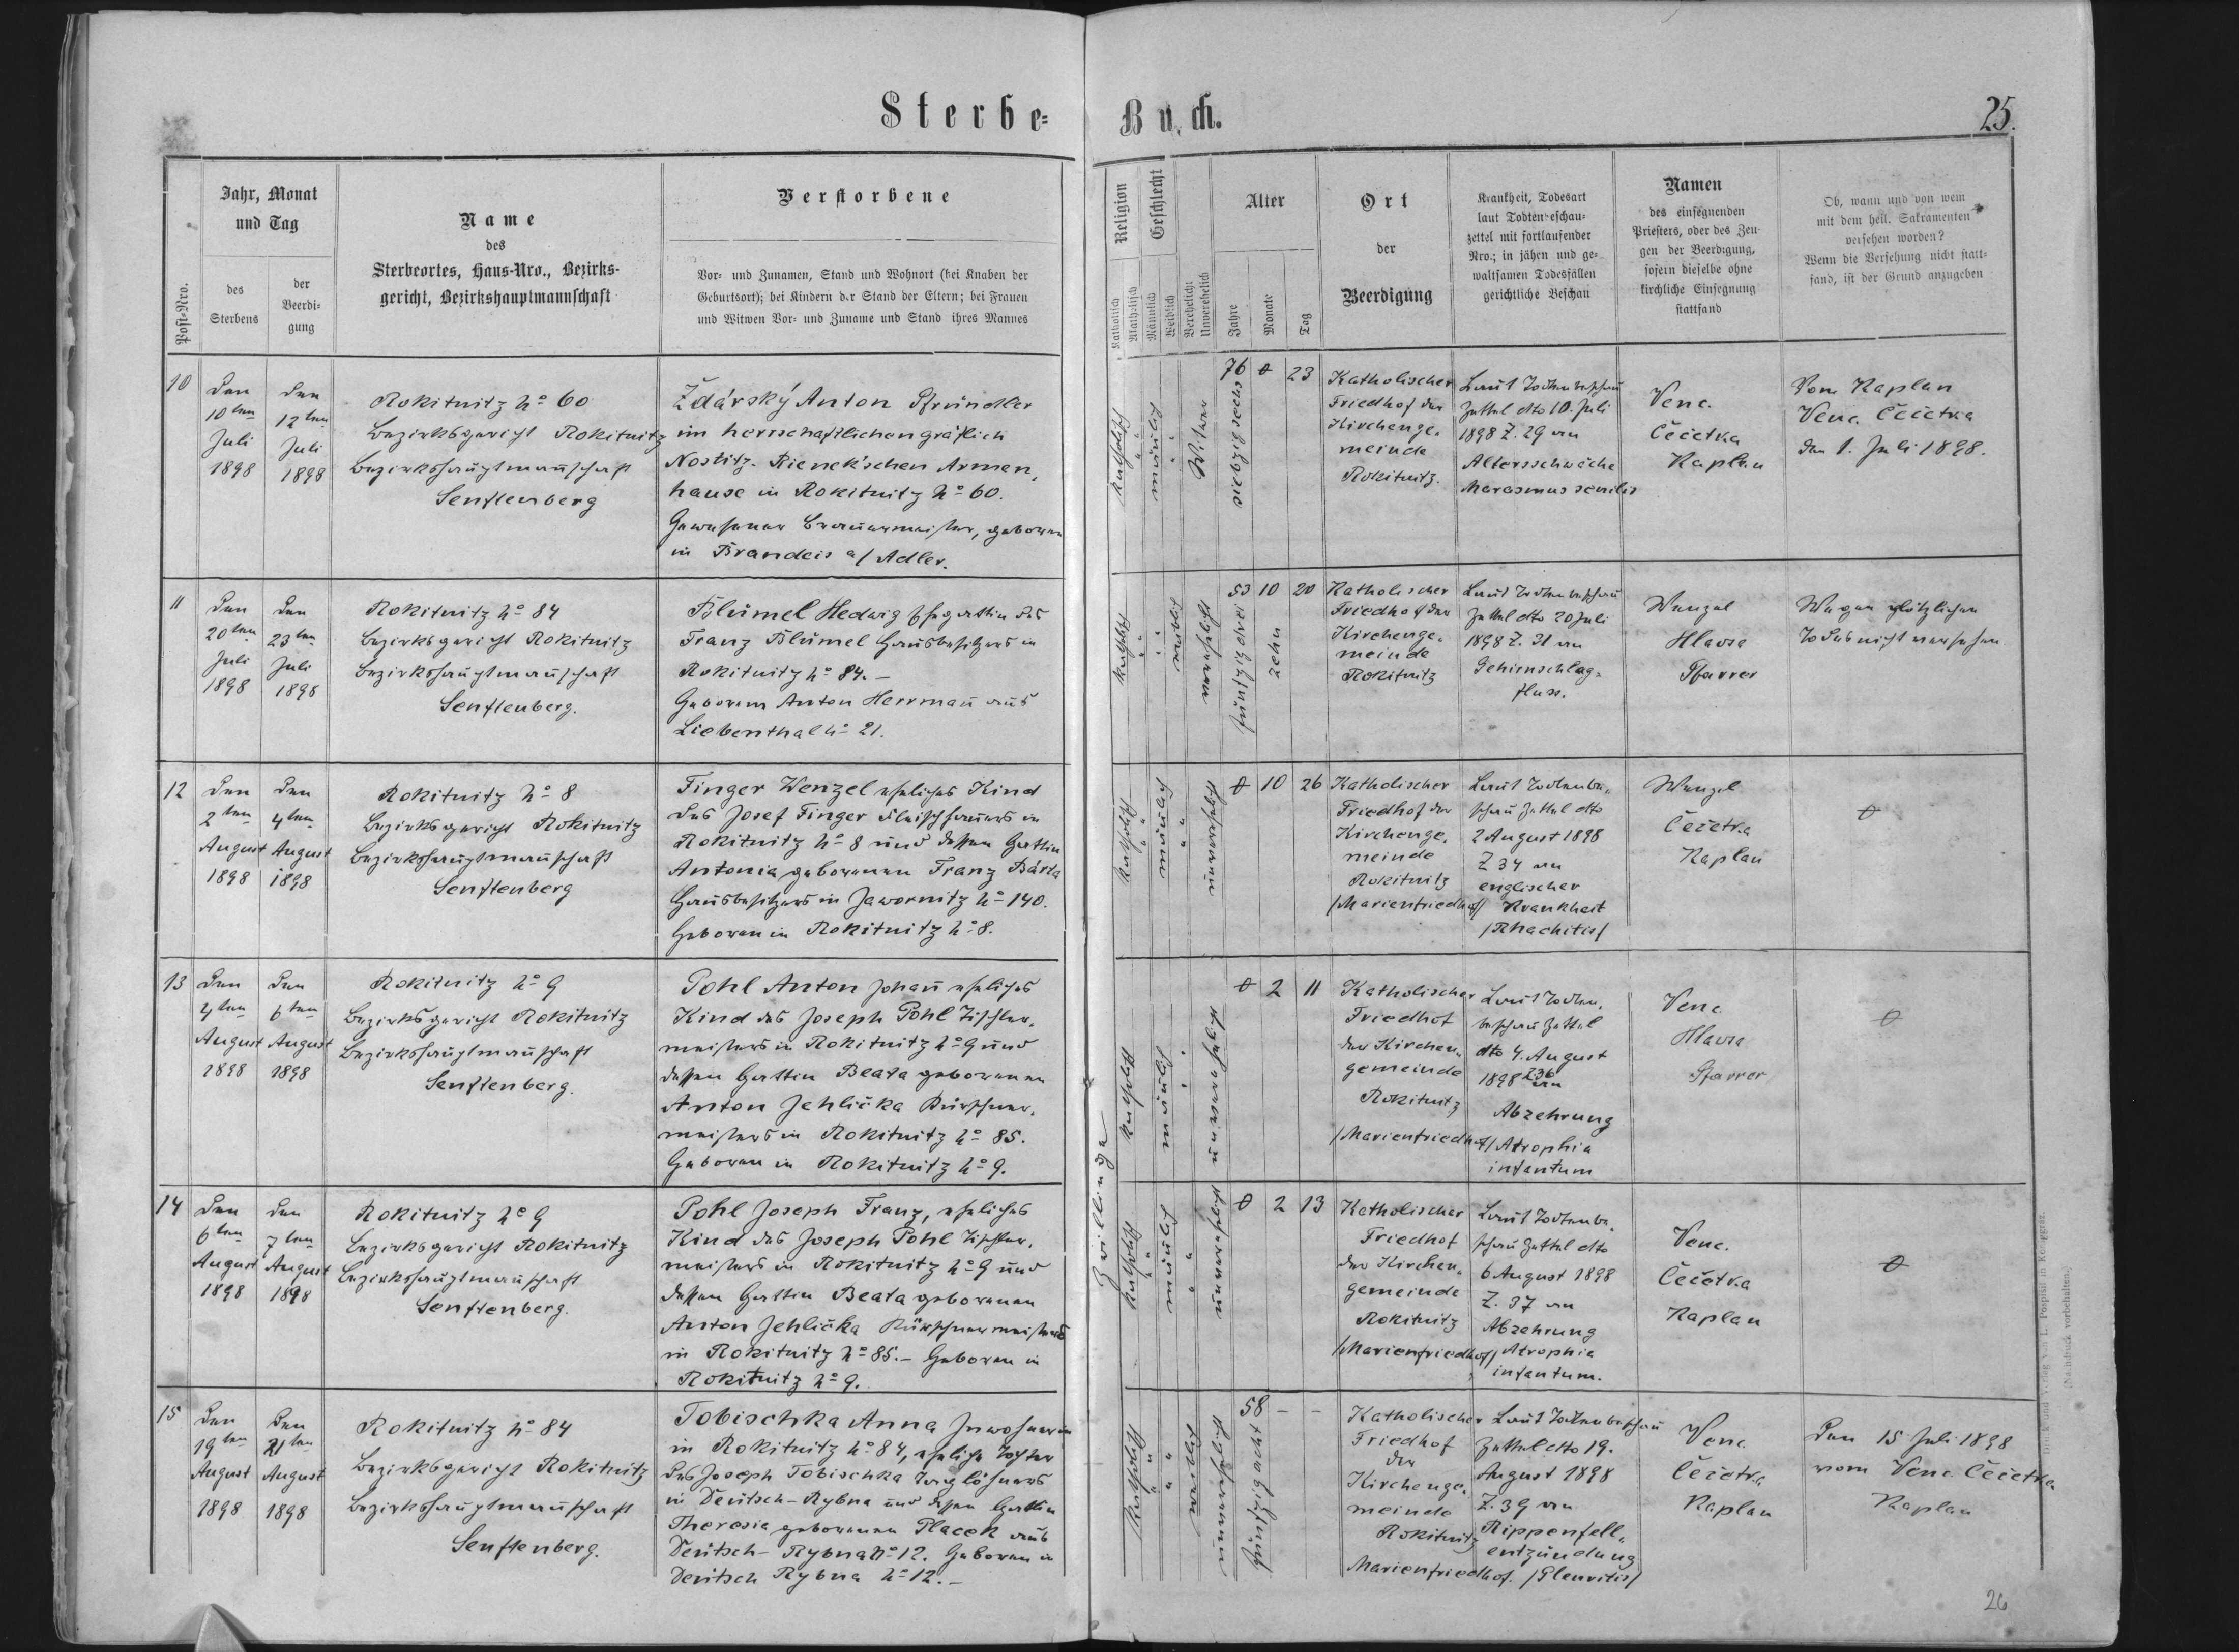 Sterbe-Buch.
25.
Post-Nro.
Jahr, Monat und Tag
des Sterbens
der Beerdigung
Name
des
Sterbeortes, Haus-Nro., Bezirks-
gericht, Bezirkshauptmannschaft
Verstorbene
Vor- und Zunamen, Stand und Wohnort (bei Knaben der
Geburtsort); bei Kindern der Stand der Eltern; bei Frauen
und Witwen Vor- und Zuname und Stand ihres Mannes
Religion
Katholisch
Akatholisch
Geschlecht
Männlich
Weiblich
Verehelicht
Unverehelicht
Alter
Jahre
Monate
Tag
Ort
der
Beerdigung
Krankheit, Todesart
laut Todtenbeschau-
zettel mit fortlaufender
Nro.; in jähen und ge-
waltsamen Todesfällen
gerichtliche Beschau
Namen
des einsegnenden
Priesters, oder des Zeu-
gen der Beerdigung,
sofern dieselbe ohne
kirchliche Einsegnung
stattfand
Ob, wann und von wem
mit dem heil. Sakramenten
versehen worden?
Wenn die Versehung nicht statt-
fand, ist der Grund anzugeben
10
Den
10ten
Juli
1898
Den
12ten
Juli
1898
Rokitnitz No 60
Bezirksgericht Rokitnitz
Bezirkshauptmannschaft
Senftenberg
Žďárský Anton Pfründler
im herrschaftlichen gräflich
Nostitz-Rieneck'schen Armen-
hause in Rokitnitz No 60.
Gewesener Brauermeister, geboren
in Brandeis a/Adler.
katholisch
männlich
Witwer
76 siebzigsechs
0
23
Katholischer
Friedhof der
Kirchenge-
meinde
Rokitnitz.
Laut Todtenbeschau
Zettel dto 10. Juli
1898 Z. 29 an
Altersschwäche
Marasmus senilis
Venc.
Čečetka
Kaplan
Vom Kaplan
Venc. Čečetka
den 1. Juli 1898.
11
Den
20ten
Juli
1898
Den
23ten
Juli
1898
Rokitnitz No 84
Bezirksgericht Rokitnitz
Bezirkshauptmannschaft
Senftenberg.
Blümel Hedwig Ehegattin des
Franz Blümel Hausbesitzers in
Rokitnitz No 84.–
Geborene Anton Herrmann aus
Liebenthal No 21.
katholisch
weiblich
verehelicht
53 fünfzigdrei
10 zehn
20
Katholischer
Friedhof der
Kirchenge-
meinde
Rokitnitz
Laut Todtenbeschau
Zettel dto 20 Juli
1898 Z. 31 an
Gehirnschlag-
fluss.
Wenzel
Hlavsa
Pfarrer
Wegen plötzlichen
Todes nicht versehen
12
Den
2ten
August
1898
Den
4ten
August
1898
Rokitnitz No 8
Bezirksgericht Rokitnitz
Bezirkshauptmannschaft
Senftenberg
Finger Wenzel eheliches Kind
des Josef Finger Fleischhauers in
Rokitnitz No 8 und dessen Gattin
Antonia geborenen Franz Bárta
Hausbesitzers in Jawornitz No 140.
Geboren in Rokitnitz No 8.
katholisch
männlich
unverehelicht
0
10
26
Katholischer
Friedhof der
Kirchenge-
meinde
Rokitnitz
/Marienfriedhof/
Laut Todtenbe-
schau Zettel dto
2 August 1898
Z 34 an
englischer
Krankheit
/Rhachitis/
Wenzel
Čečetka
Kaplan
0
13
Den
4ten
August
1898
Den
6ten
August
1898
Rokitnitz No 9
Bezirksgericht Rokitnitz
Bezirkshauptmannschaft
Senftenberg.
Pohl Anton Johann eheliches
Kind des Joseph Pohl Tischler-
meisters in Rokitnitz No 9 und
dessen Gattin Beata geborenen
Anton Jehlička Kürschner-
meisters in Rokitnitz No 85.
Geboren in Rokitnitz No 9.
Zwillinge
katholisch
männlich
unverehelicht
0
2
11
Katholischer
Friedhof
der Kirchen-
gemeinde
Rokitnitz
/Marienfriedhof/
Laut Todten-
beschau Zettel
dto 4. August
1898 Z 36 an
Abzehrung
/Atrophia
infantum
Venc.
Hlavsa
Pfarrer
0
14
Den
6ten
August
1898
Den
7ten
August
1898
Rokitnitz No 9
Bezirksgericht Rokitnitz
Bezirkshauptmannschaft
Senftenberg.
Pohl Joseph Franz, eheliches
Kind des Joseph Pohl Tischler-
meisters in Rokitnitz No 9 und
dessen Gattin Beata geborenen
Anton Jehlička Kürschnermeisters
in Rokitnitz No 85.– Geboren in
Rokitnitz No 9.
katholisch
männlich
unverehelicht
0
2
13
Katholischer
Friedhof
der Kirchen-
gemeinde
Rokitnitz
/Marienfriedhof/
Laut Todtenbe-
schau Zettel dto
6 August 1898
Z. 37 an
Abzehrung
Atrophia
infantum.
Venc.
Čečetka
Kaplan
0
15
Den
19ten
August
1898
Den
21ten
August
1898
Rokitnitz No 84
Bezirksgericht Rokitnitz
Bezirkshauptmannschaft
Senftenberg.
Tobischka Anna Inwohnerin
in Rokitnitz No 84, eheliche Tochter
des Joseph Tobischka Taglöhners
in Deutsch-Rybna und dessen Gattin
Theresia geborenen Placek aus
Deutsch-Rybna No 12. Geboren in
Deutsch Rybna No 12.–
katholisch
weiblich
unverehelicht
58 fünfzigacht
–
–
Katholischer
Friedhof
der
Kirchenge-
meinde
Rokitnitz
Marienfriedhof.
Laut Todtenbeschau
Zettel dto 19.
August 1898
Z. 39 an
Rippenfell-
entzündung
/Pleuritis/
Venc.
Čečetka
Kaplan
Den 15 Juli 1898
vom Venc. Čečetka
Kaplan
(Nachdruck vorbehalten.)
26